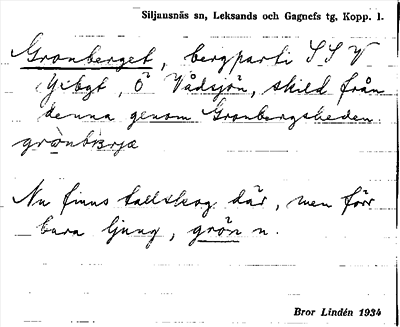 Siljansnäs sn, Leksands och Gagnefs tg, Kopp. l.
Gronberget, bergparti SSV
Yibgt, Ö Vådsjön, skild från
denna genom Gronbergsheden.
Nu finns tallskog där, men förr
bara ljung, grön n.
Bror Lindén 1934